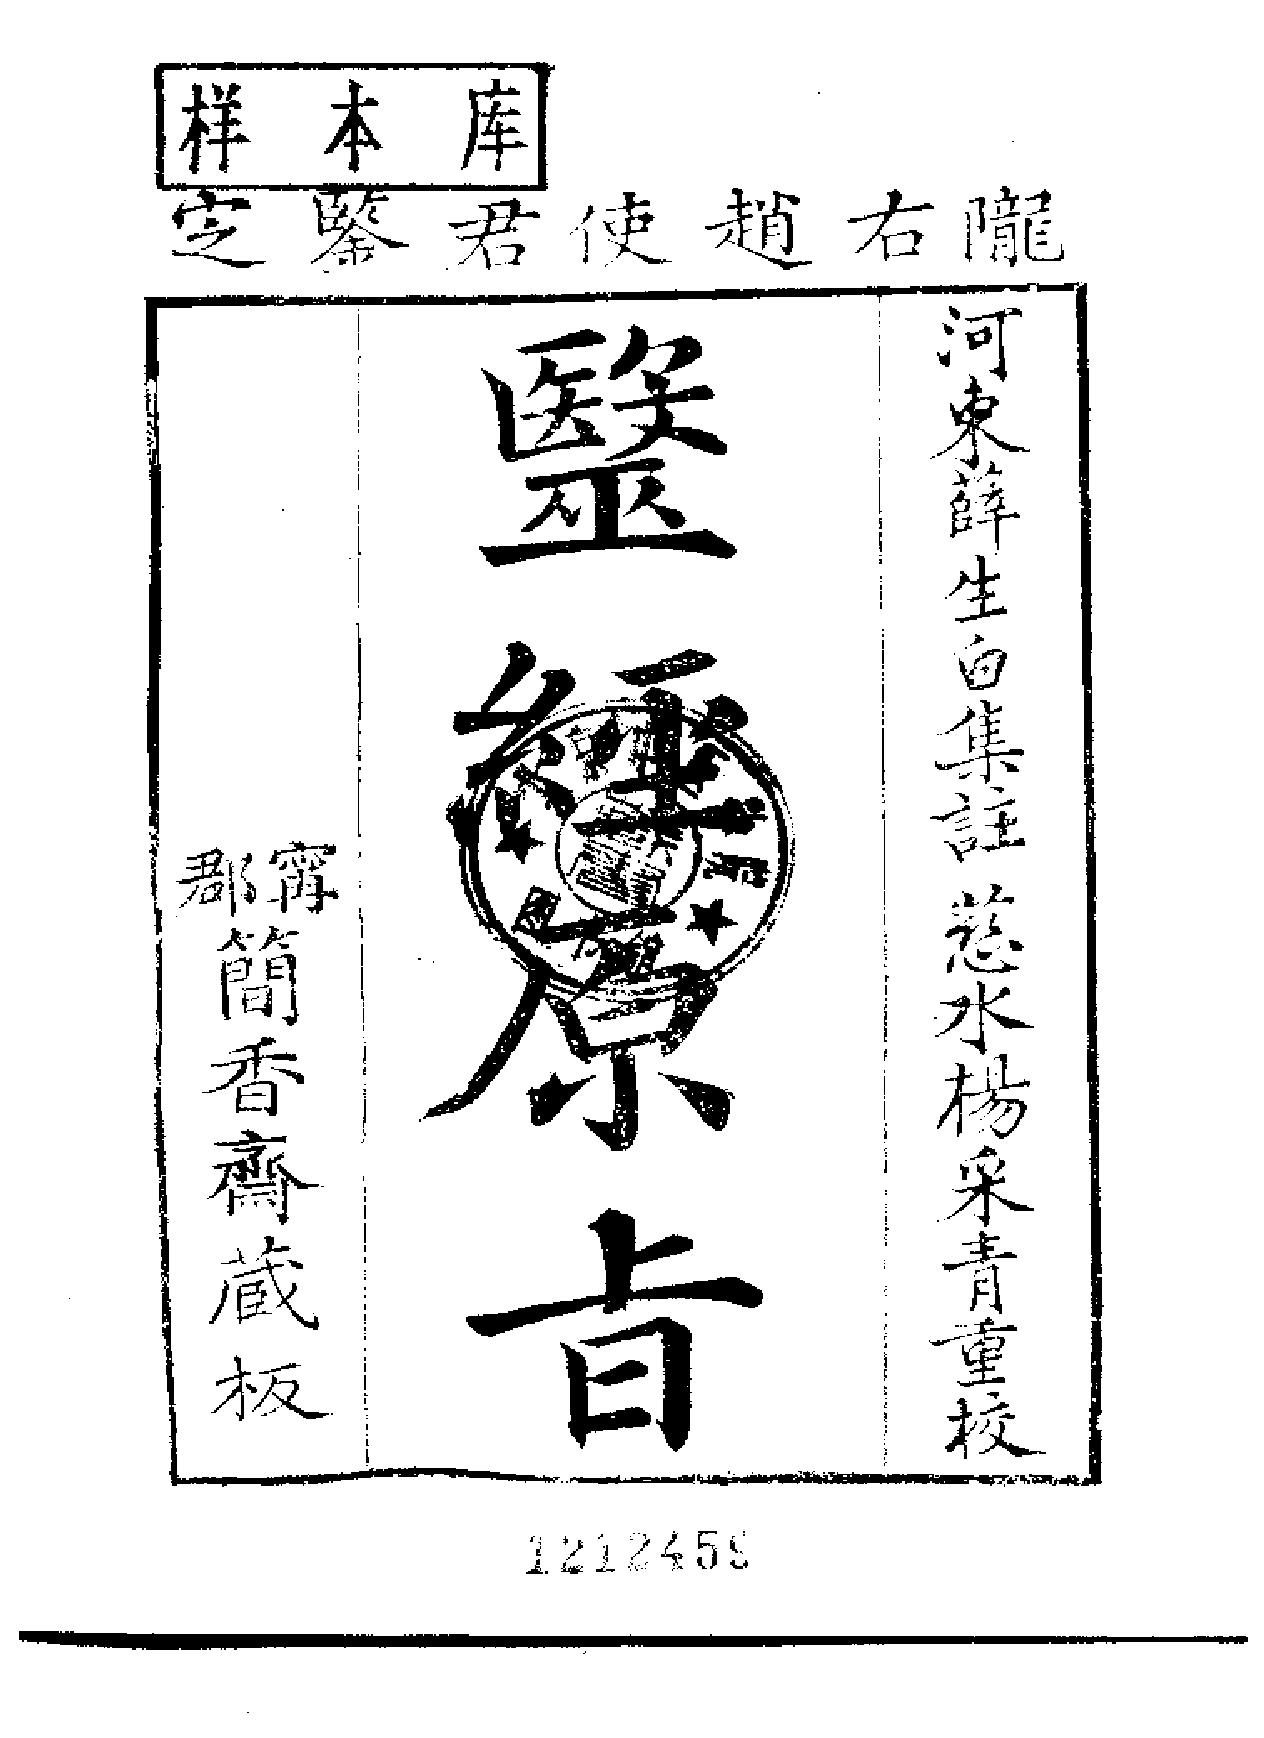 样本库
隴右趙使君鑒定
河東薛生白集註 慈水楊采青重校
毉經原旨
甯郡簡香齋蔵板